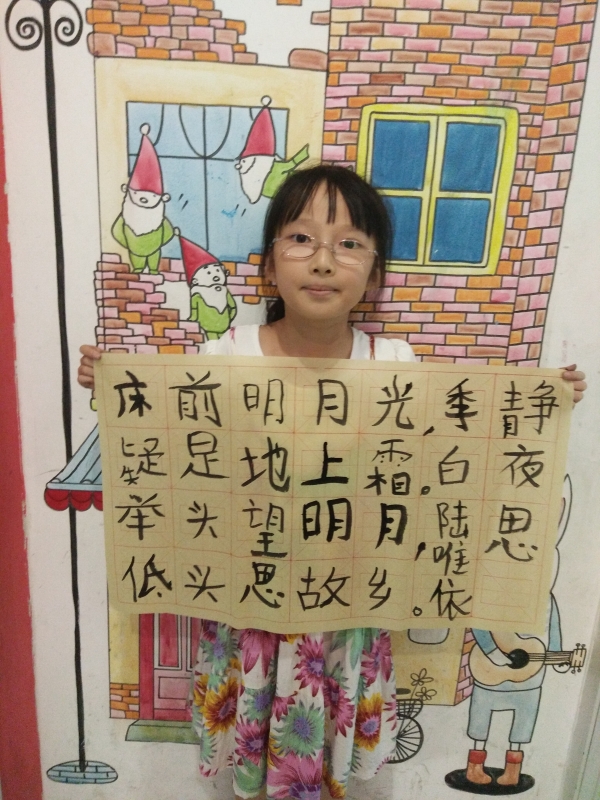 静夜思
季白
床前明月光,
疑足地上霜。
举头望明月,
低头思故乡。
陆唯依